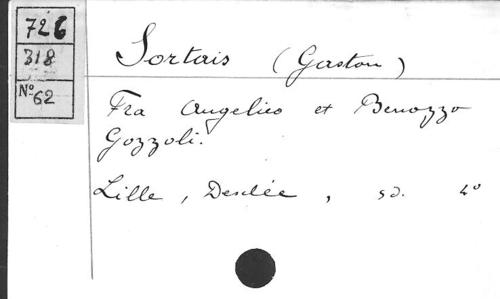 726
318
Nº 62
Sortais (Gaston)
Fra Angelico et Benozzo
Gozzoli.
Lille, Desclée, sd. 4º